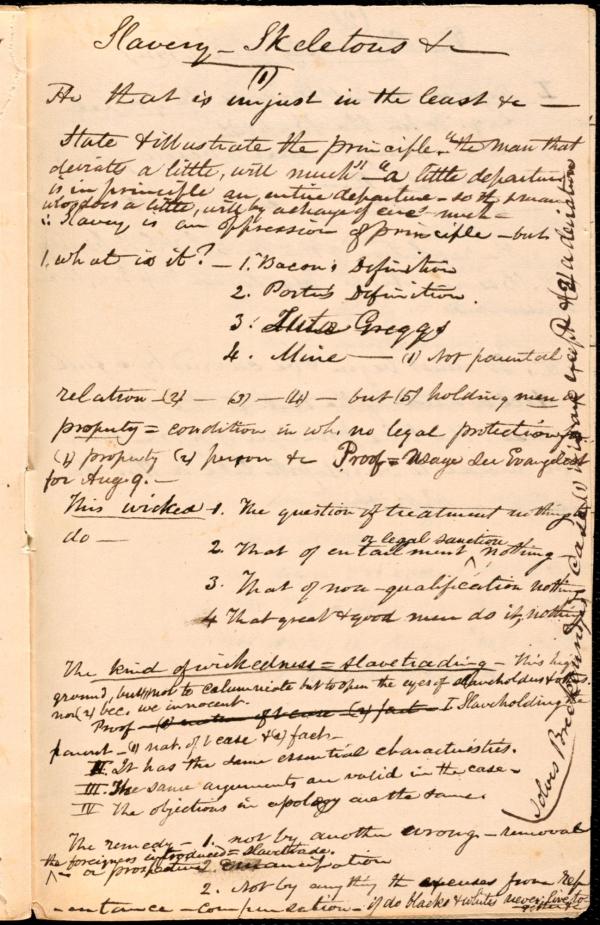 Slavery – Skeletons &c
(1)
He that is unjust in the least &c —
State & illustrate the principle – "the man that
deviates a little, will much" – "a little departure
is in principle an entire departure – so the man
who does a little, will by a change of circs much –
∴ Slavery is an oppression of principle – but
1. what is it? – 1. Bacon's Definition
2. Porter's Definition.
3. Greggs
4. Mine — (1) Not parental
relation – (2) – (3) – (4) – but (5) holding men as
property = condition in wh. no legal protection for
(1) property (2) person &c Proof = Usage See Evangelist
for Aug. 9. –
This wicked – 1. The question of treatment nothing
do — or legal sanction
2. That of entailment ^ nothing
3. That of non-qualification nothing
4 That great & good men do it, nothing
The kind of wickedness = slavetrading – This high
ground, but (1) not to calumniate but to open the eyes of slaveholders &
nor (2) bec. we innocent.
Proof – (1) nature of t case – (2) fact – I Slaveholding
parent – (1) nat. of t case & (2) fact –
II. It has the same essential characteristics.
III. The same arguments are valid in the case –
IV The objections in apology are the same.
The remedy – 1. not by another wrong – removal
the foreigners introduced = slavetrade.
^ – or prospective emancipation
2. Not by anything th excuses from rep
-entance – compensation – if do blacks & whites never live to-
gether